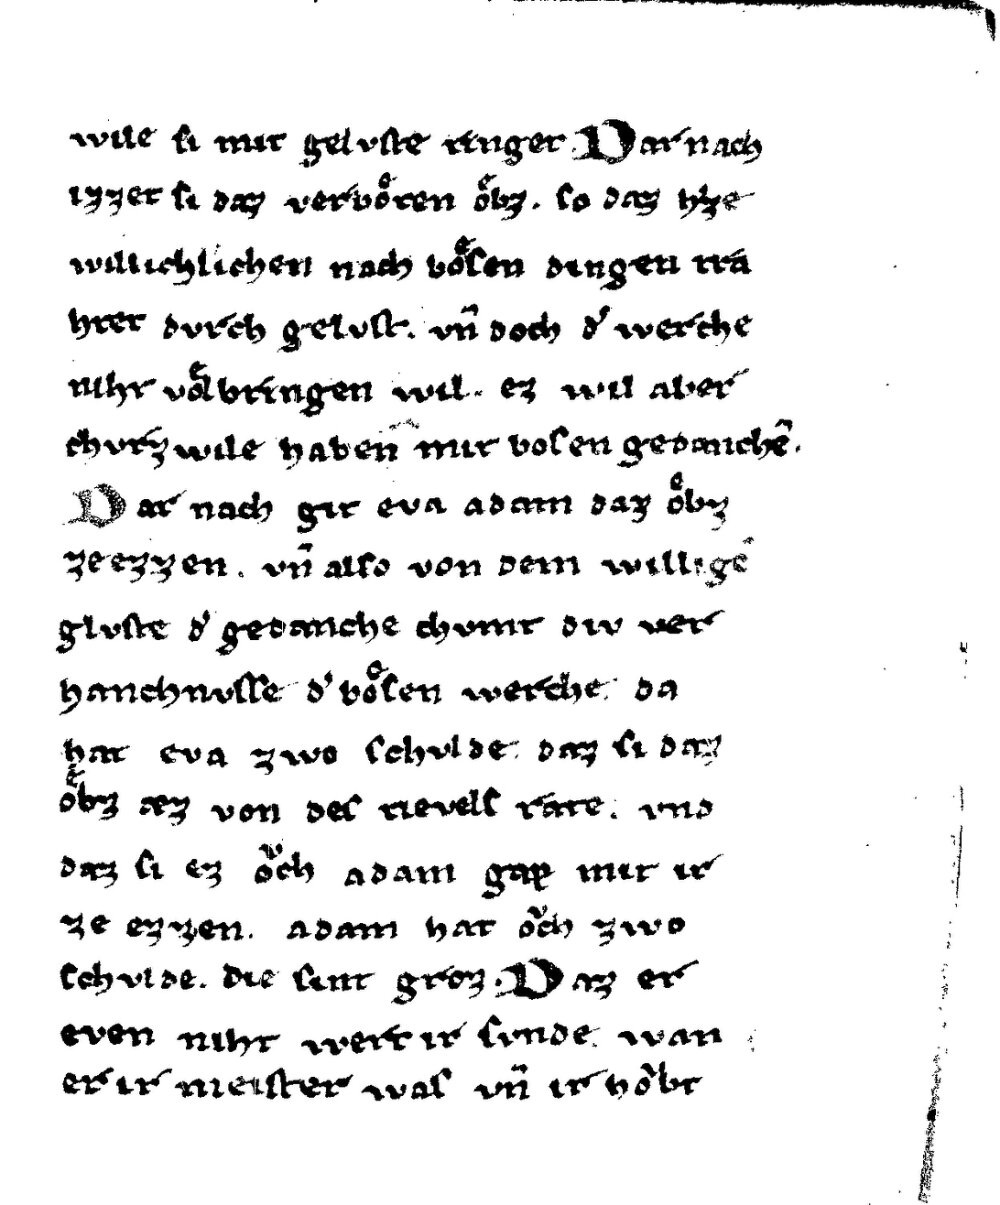 wile si mit geluste ringet. Dar nach
izzet si daz verboͤten oͤbz. so daz h'ze
willichlichen nach boͤsen dingen tra
htet durch gelust. vn̄ doch d' werche
niht voͤlbringen wil. ez wil aber
churzwile haben mit bosen gedanchē.
Dar nach git eva adam daz oͤbz
ze ezzen. vn̄ also von dem willigē
gluste d' gedanche chumt div ver
hanchnusse d' boͤsen werche. da
hat eva zwo schulde. daz si daz
oͤbz æz von des tievels rate. vnd
daz si ez oͮch adam gap mit ir
ze ezzen. adam hat oͮch zwo
schulde. die sint groz. Daz er
even niht wert ir sunde. wan
er ir meister was vn̄ ir hoͮbt